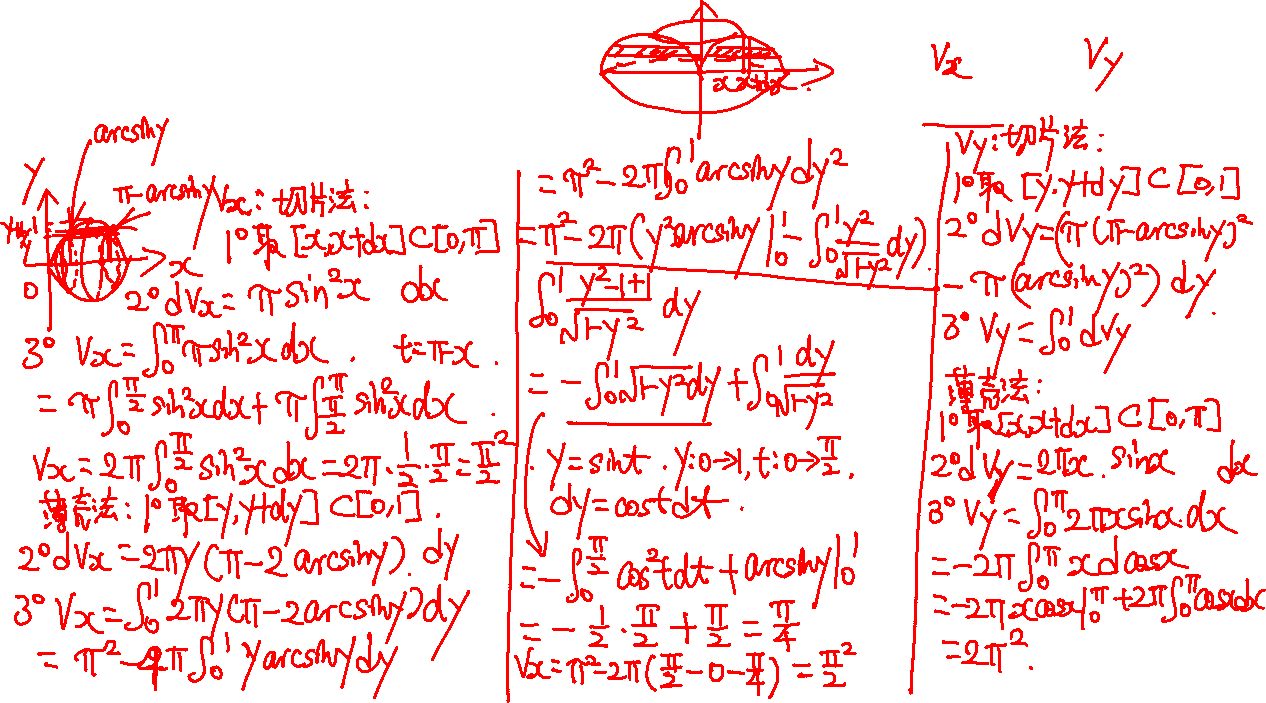 arcsiny
y
π-arcsiny
y+dy
y
1
0
x
Vx:切片法:
1° 取 [x,x+dx]⊂[0,π]
2° dVx=πsin²x dx
3° Vx=∫₀^π πsin²xdx. t=π-x.
=π∫₀^(π/2) sin²xdx+π∫_(π/2)^π sin²xdx.
Vx=2π∫₀^(π/2) sin²xdx=2π·1/2·π/2=π²/2.
薄壳法: 1° 取[y,y+dy]⊂[0,1].
2° dVx=2πy(π-2arcsiny).dy
3° Vx=∫₀¹2πy(π-2arcsiny)dy
=π²-4π∫₀¹yarcsinydy
x x+dx
=π²-2π∫₀¹arcsinydy²
=π²-2π(y²arcsiny|₀¹-∫₀¹ y²/√(1-y²) dy).
∫₀¹ (y²-1+1)/√(1-y²) dy
=-∫₀¹√(1-y²)dy+∫₀¹ dy/√(1-y²)
y=sint. y:0→1,t:0→π/2.
dy=costdt.
=-∫₀^(π/2) cos²tdt+arcsiny|₀¹
=-1/2·π/2+π/2=π/4
Vx=π²-2π(π/2-0-π/4)=π²/2
Vx Vy
Vy:切片法:
1° 取 [y,y+dy]⊂[0,1]
2° dVy=(π(π-arcsiny)²
-π(arcsiny)²)dy
3° Vy=∫₀¹dVy
薄壳法:
1° 取[x,x+dx]⊂[0,π]
2° dVy=2πx.sinx dx
3° Vy=∫₀^π 2πxsinx.dx
=-2π∫₀^π xdcosx
=-2πxcosx|₀^π+2π∫₀^π cosxdx
=2π².